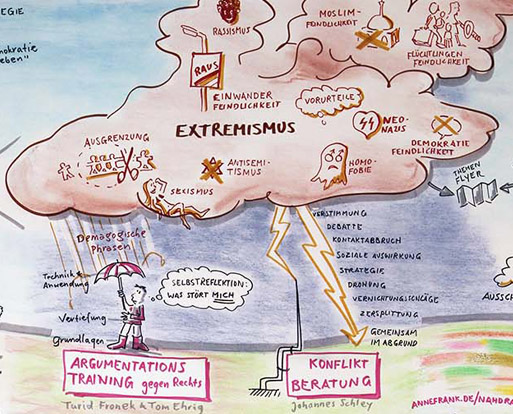 EGIE
RASSISMUS
MOSLIM-
FEINDLICHKEIT
FLÜCHTLINGEN
FEINDLICHKEIT
RAUS
EINWANDER
FEINDLICHKEIT
VORURTEILE
NEO-
NAZIS
EXTREMISMUS
DEMOKRATIE
FEINDLICHKEIT
AUSGRENZUNG
ANTISEMI-
TISMUS
HOMO-
FOBIE
SEXISMUS
THEMEN
FLYER
Demagogische
Phrasen
VERSTIMMUNG
DEBATTE
KONTAKTABBRUCH
SOZIALE AUSWIRKUNG
STRATEGIE
DROHUNG
VERNICHTUNGSCHLÄGE
ZERSPLITTUNG
GEMEINSAM
IM ABGRUND
Technik &
Anwendung
Vertiefung
Grundlagen
SELBSTREFLEKTION:
WAS STÖRT MICH
ARGUMENTATIONS
TRAINING gegen Rechts
Turid Fronek & Tom Ehrig
KONFLIKT
BERATUNG
Johannes Schley
AUSSCH
ANNEFRANK.DE/NAHDRA